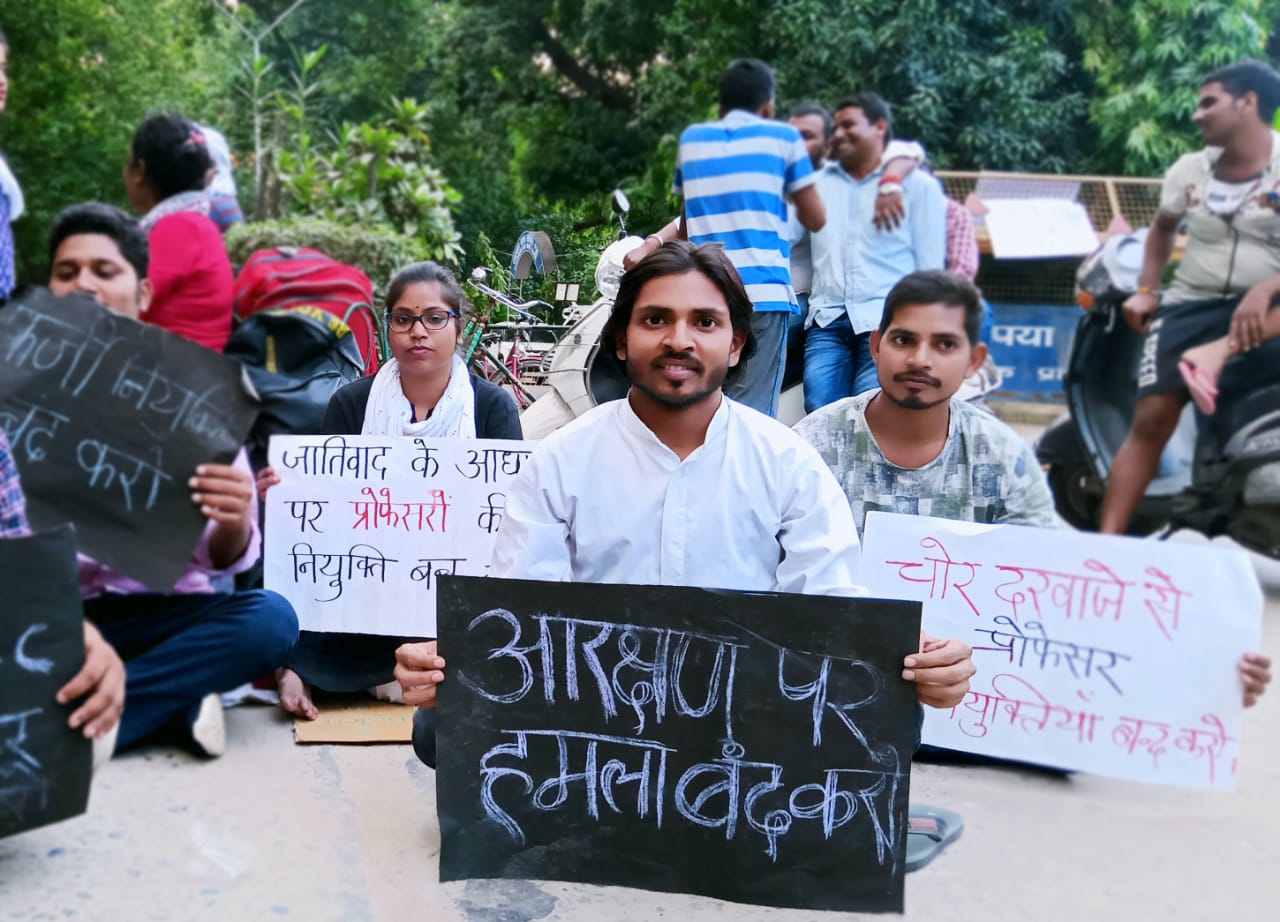 नियुक्ति
बंद करो
जातिवाद के
पर प्रोफेसरों की
नियुक्ति बन्द
आरक्षण पर
हमला बंद करो
चोर दरवाजे से
प्रोफेसर
नियुक्तियाँ बन्द करो
पया